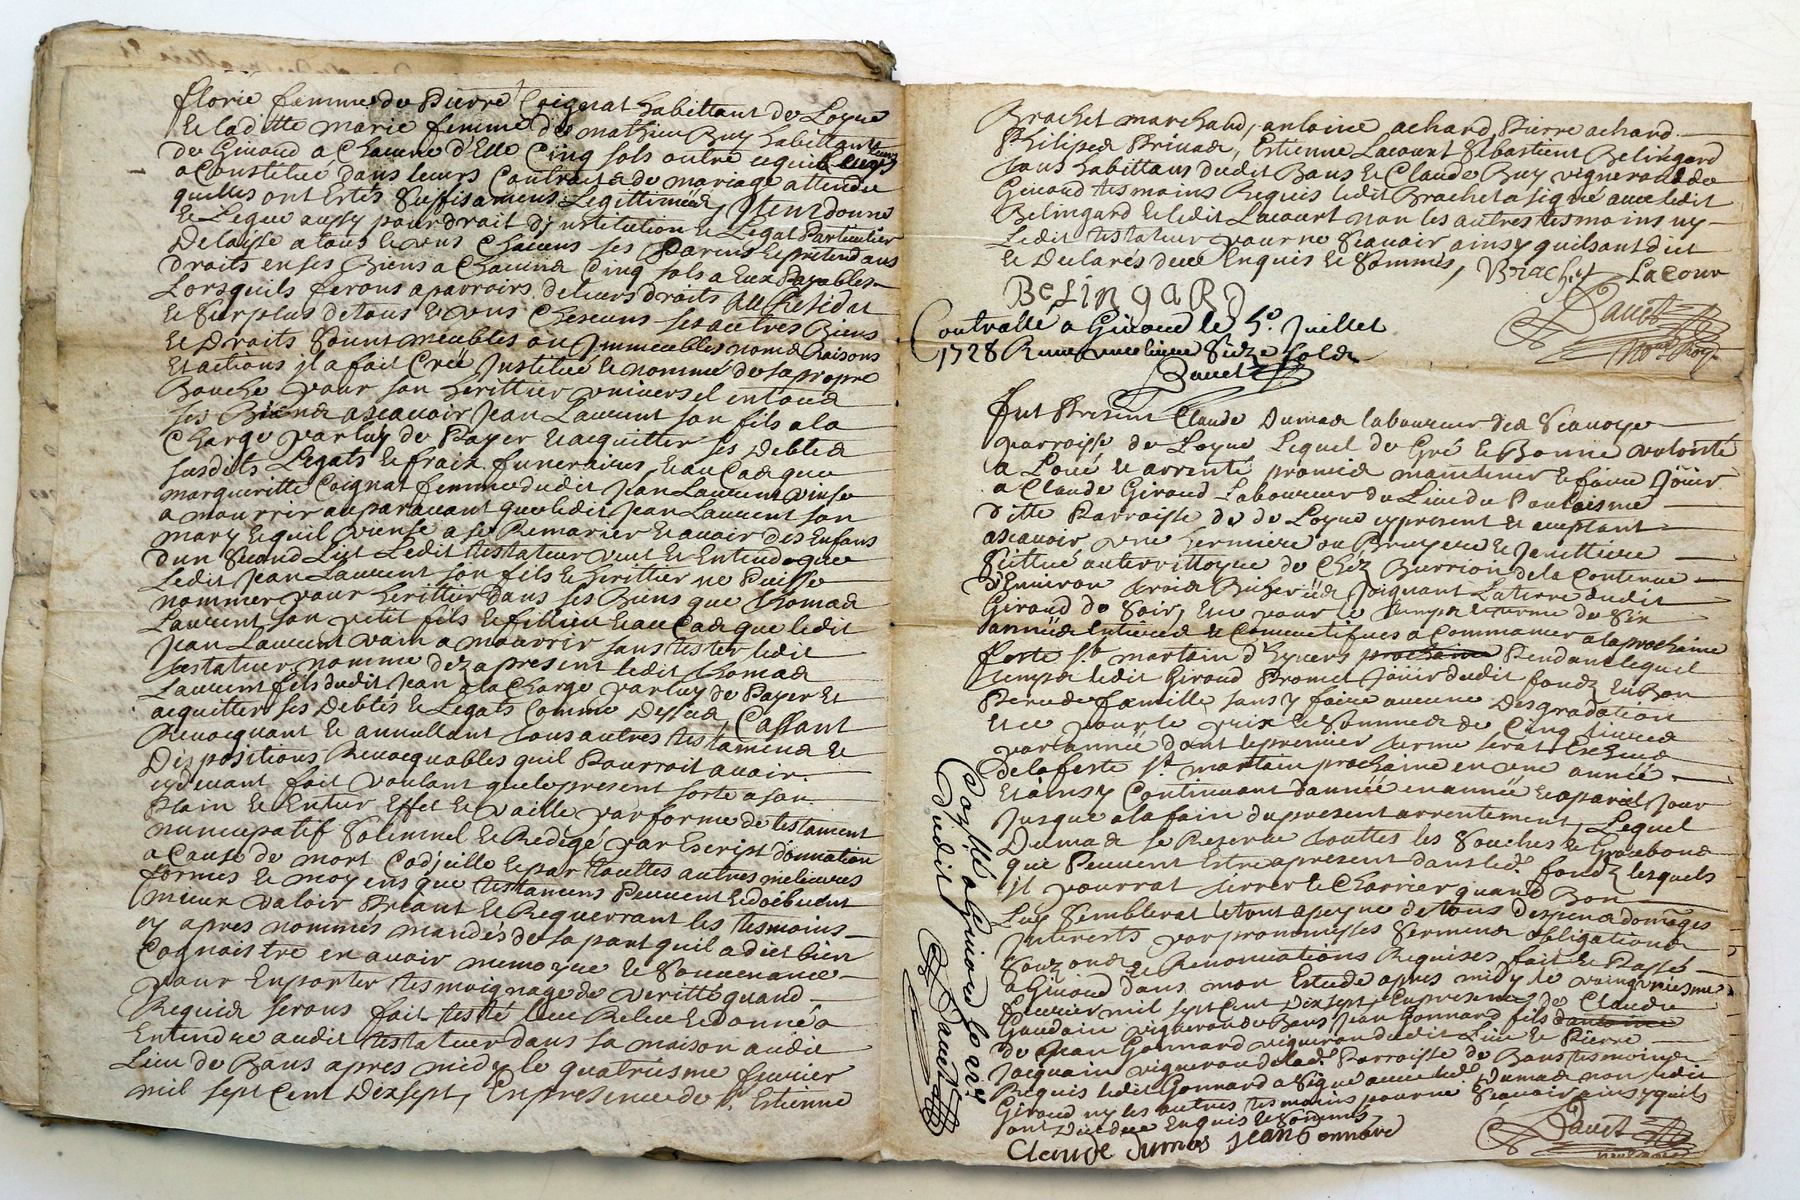 florie femme de Pierre Coignat habittant de Loyre
Et laditte marie femme de mathieu Buy habittant
de Givord a Chacune d'Elle Cinq sols outre ce quil leurs
a Constitué dans leurs Contracts de mariage attendu
quelles ont Estés Suffisament Legittimées, Item donne
et Legue aussy pour droit d'institution et Legat Particulier
Delaisse a tous et uns Chacuns ses Parens et pretendans
droits en ses Biens a Chacund Cinq sols a Eux Payables
Lorsquils ferons aparroirs de leurs droits Au Residu
et Surplus de tous et uns Chescuns ses autres Biens
et Droits Sount meubles ou Immeubles noms Raisons
Et actions il a fait Creé Institué et nommé de sa propre
Bouche pour son heritier universel en tous
ses Biens ascavoir Jean Laurent son fils a la
Charge par luy de Payer et acquitter ses Debtes
susdits Legats et fraix funeraires, et au Cas que
margueritte Coignat femme dudit Jean Laurent vinse
a mourrir auparavant que ledit Jean Laurent son
mary et quil vinse a se Remarier et avoir des Enfans
dun Second Lit Ledit testateur veut et Entend que
Ledit Jean Laurent son fils et herittier ne Puisse
nommer pour herittier dans ses Biens que thomas
Laurent son petit fils et fillieu et au Cas que ledit
Jean Laurent vain a mourrir sans tester ledit
testateur nomme dez a present ledit thomas
Laurent fils dudit Jean a la Charge par luy de Payer et
acquitter ses Debtes et Legats Comme Dessus, Cassant
Revocquant et annullant tous autres testamens et
Dispositions Revocquables quil Pourroit avoir
cy devant fait voulant que le present sorte a son
Plain et Entier Effet et vaille par forme de testament
nuncupatif Solemnel et Redigé par Escript donnation
a Cause de mort Codicille et par touttes autres melieures
formes et moyens que testamens Peuvent et doibvent
mieux valoir Priant et Requerrant les tesmoins
cy apres nommés mandés de sa part quil a dit bien
Cognoistre en avoir memoyre et Souvenance
pour En porter tesmoignage de veritté quand
Requis serons fait testé leu Releu et donné a
Entendre audit testateur dans sa maison audit
Lieu de Bans apres midy le quatriesme fevrier
mil sept Cent Dixsept, En presence de Sr Estienne
Brachet marchand, antoine achard, Pierre achard
Philipes Privas, Estienne Lacourt Sebastient Belingard
tous habittans dudit Bans et Claude Buy vigneron de
Givord tesmoins Requis ledit Brachet a signé avec ledit
Belingard et ledit Lacourt non les autres tesmoins ny
Ledit testateur pour ne Scavoir ainsy quils ont dict
et Declares deue Enquis et Sommés, Brachet Lacour
BeLingARD
Dauet
Contrallé a Givord le 5e Juillet
1728
Dauet
fut Present Claude Dumas laboureur des
parroisse de Loyre Lequel de Gré et Bonne volonté
a Loué et arrenté promis maintenir et faire Jouir
a Claude Giraud Laboureur du Lieu du
ditte Parroisse de de Loyre cy present et acceptant
ascavoir une hermiere ou Bruyere et
Scittué au territtoyre de Chéz Burrion de la Contenue
d'Environ trois Bicherées Joignant La terre dudit
Giraud de Soir, Ece pour le temps et terme de Six
années Entieres et Consecutifves a Commancer a la prochaine
feste St martain d'hyvers prochaine Pendant lequel
temps ledit Giraud Promet Jouir dudit fondz En Bon
Pere de famille sans y faire aucune Desgradation
Et ce pour le prix et Somme de Cinq livres
par année dont le premier terme serat Escheue
de la feste St martain prochaine en une année
Et ainsy Continuant d'année en année et a pareil Jour
Jusque a la fain du present arrentement, Lequel
Dumas se Reserve touttes les Souches et
que Peuvent Estre apresent dans led. fondz lesquels
il pourrat tirrer et Charrier quand Bon
Luy Semblerat Le tout a peyne de tous despens domages
Interests par promesses Sermens obligations
et Renonciations Requises fait et Passé
a Givord dans mon Estude apres midy le
fevrier mil sept Cent Dixsept, En presence de Claude
Gaudain vigneron de Bans, Jean Gonnard fils d'antoine
de Jean Gonnard vigneron dudit Lieu et Pierre
Jacquain vigneron de lad. Parroisse de Bans tesmoins
Requis ledit Gonnard a Signé avec led. Dumas non ledit
Giraud ny les autres tesmoins pour ne Scavoir ainsy quils
ont Dict deue Enquis et Sommés
Claude Dumas Jean Gonnard
Dauet
Conttlé a Givord le
dudit
Dauet